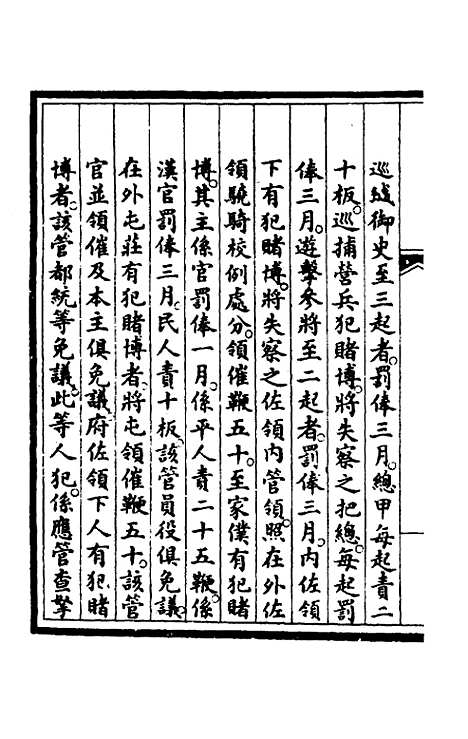 巡城御史至三起者。罰俸三月。總甲每起責二
十板。巡捕營兵犯賭博。將失察之把總。每起罰
俸三月。遊擊參將至二起者。罰俸三月。內佐領
下有犯賭博。將失察之佐領內管領。照在外佐
領驍騎校例處分。領催鞭五十。至家僕有犯賭
博。其主係官罰俸一月。係平人責二十五鞭。係
漢官罰俸三月。民人責十板。該管員役俱免議。
在外屯莊有犯賭博者。將屯領催鞭五十。該管
官並領催及本主俱免議。府佐領下人有犯賭
博者。該管都統等免議。此等人犯。係應管查拏